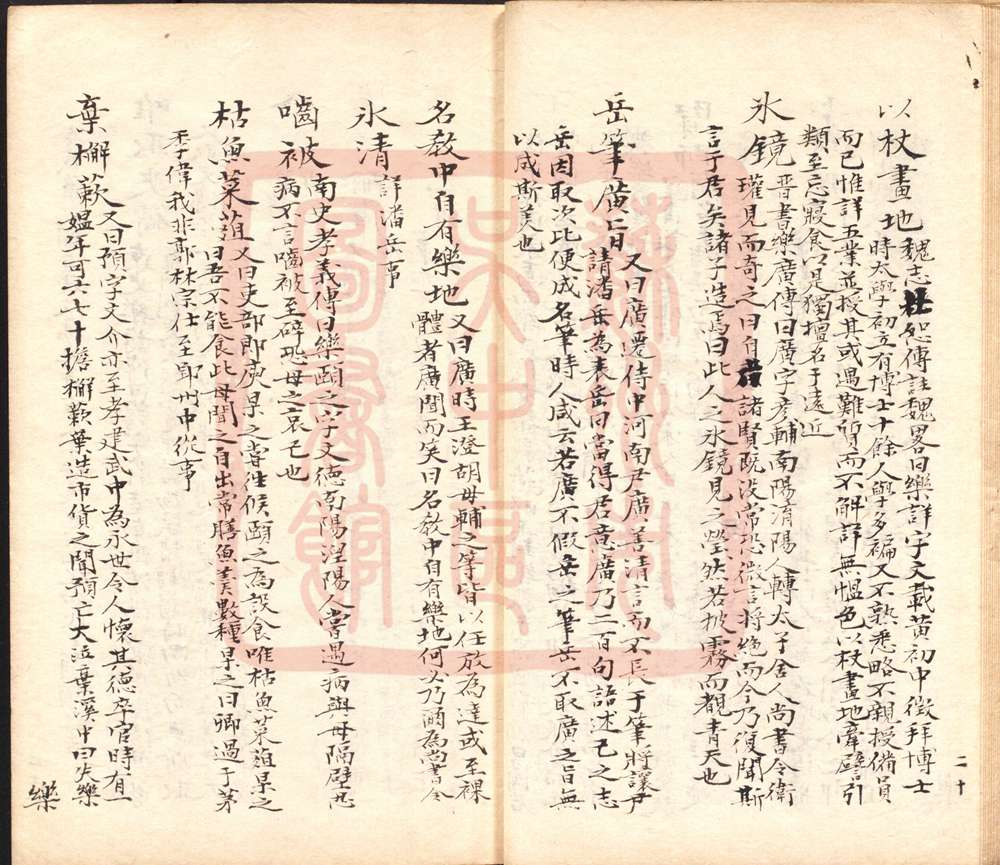 以杖畫地魏志杜恕傳註魏畧曰樂詳字文載黄初中徴拜博士
時太學初立有博士十餘人學多褊又不熟悉略不親授備員
而已惟詳五業並授其或遇難質而不解詳無愠色以杖畫地牽譬引
類至忘寢食以是獨擅名于遠近
氷鏡晋書樂廣傳曰廣字彦輔南陽淯陽人轉太子舍人尚書令衛
瓘見而奇之曰自昔諸賢既没常恐微言將絶而今乃復聞斯
言于君矣諸子造焉曰此人之氷鏡見之瑩然若披霧而覩青天也
岳筆廣旨又曰廣遷侍中河南尹廣善清言而不長于筆將讓尹
請潘岳為表岳曰當得君意廣乃二百句語述己之志
岳因取次比便成名筆時人咸云若廣不假岳之筆岳不取廣之旨無
以成斯美也
名教中自有樂地又曰廣時王澄胡毋輔之等皆以任放為達或至裸
體者廣聞而笑曰名教中自有樂地何必乃爾為尚書令
氷清詳潘岳事
嚙被南史孝義傳曰樂頤之字文德南陽涅陽人嘗遇病與母隔壁忍
病不言嚙被至碎恐母之哀己也
枯魚菜菹又曰吏部郎庾杲之嘗往候頤之為設食唯枯魚菜菹杲之
曰吾不能食此母聞之自出常膳魚羮數種杲之曰卿過于茅
季偉我非郭林宗仕至郢州中從事
棄檞蔌又曰預字文介亦至孝建武中為永世令人懷其德卒官時有一
媪年可六七十擔檞蔌葉造市貨之聞預亡大泣棄溪中曰失樂
樂
二十